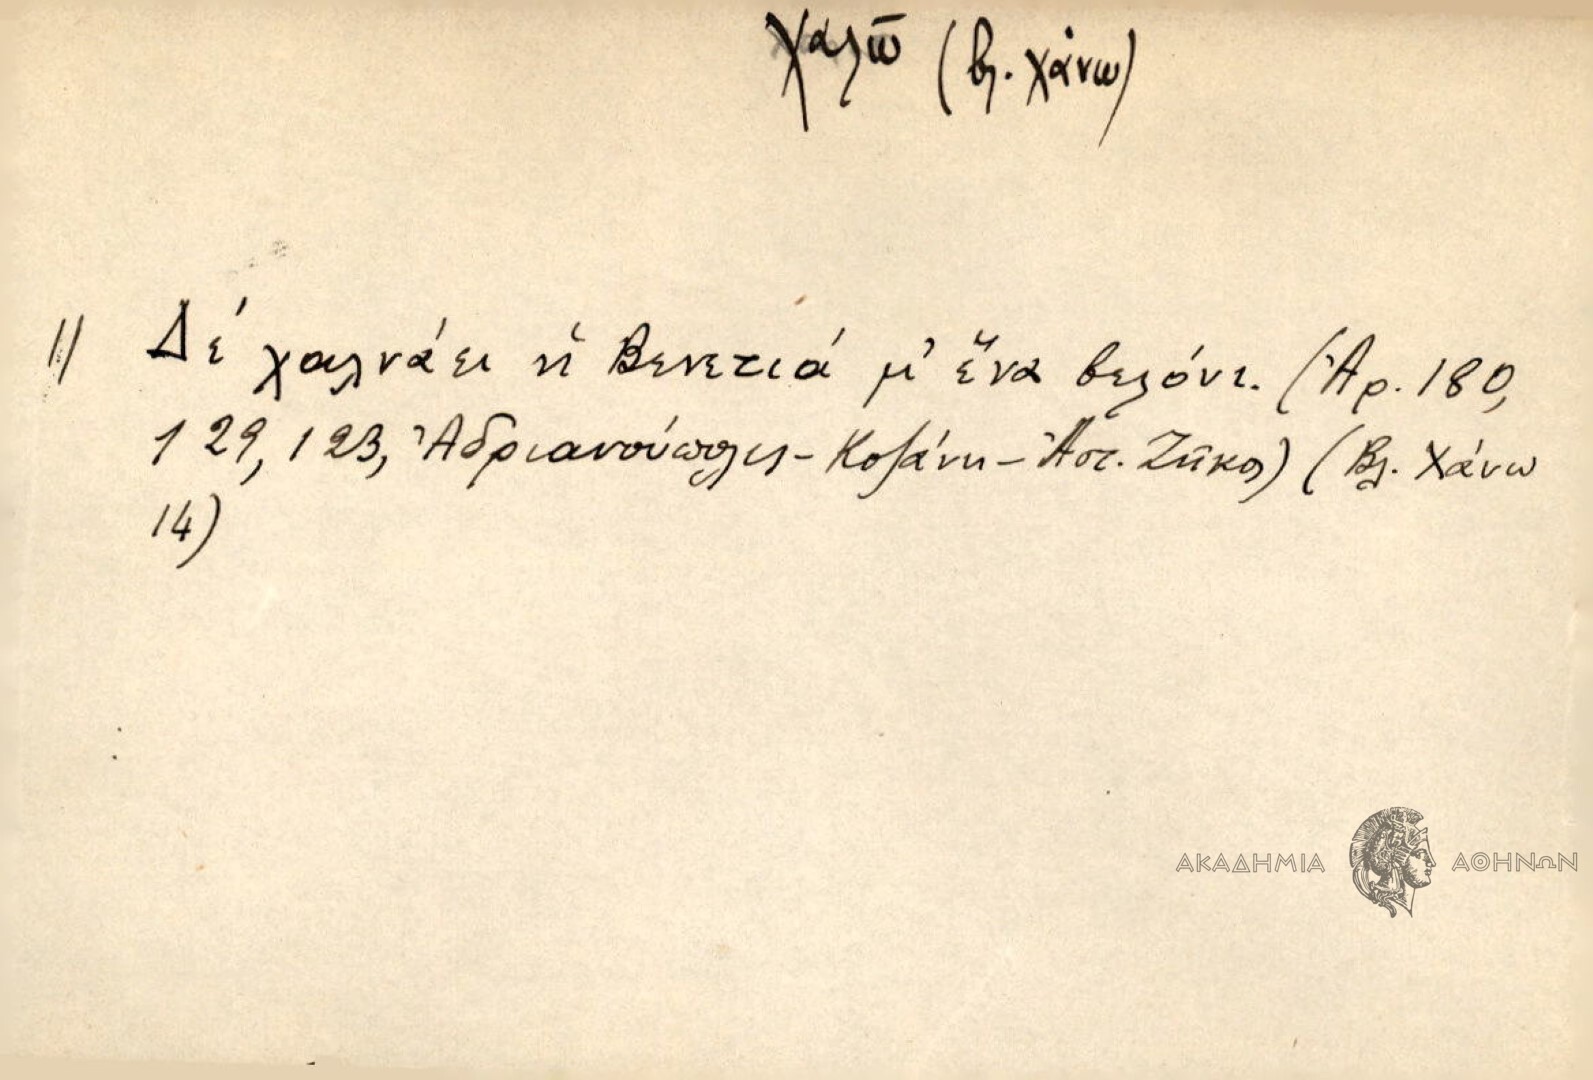 χαλῶ (βλ. χάνω)
11 Δέ χαλνάει ἡ Βενετιά μ' ἕνα βελόνι. (Ἀρ. 180,
129, 123, Ἀδριανούπολις - Κοζάνη - Ἀστ. Ζῆκος) (Βλ. Χάνω
14)
ΑΚΑΔΗΜΙΑ ΑΘΗΝΩΝ